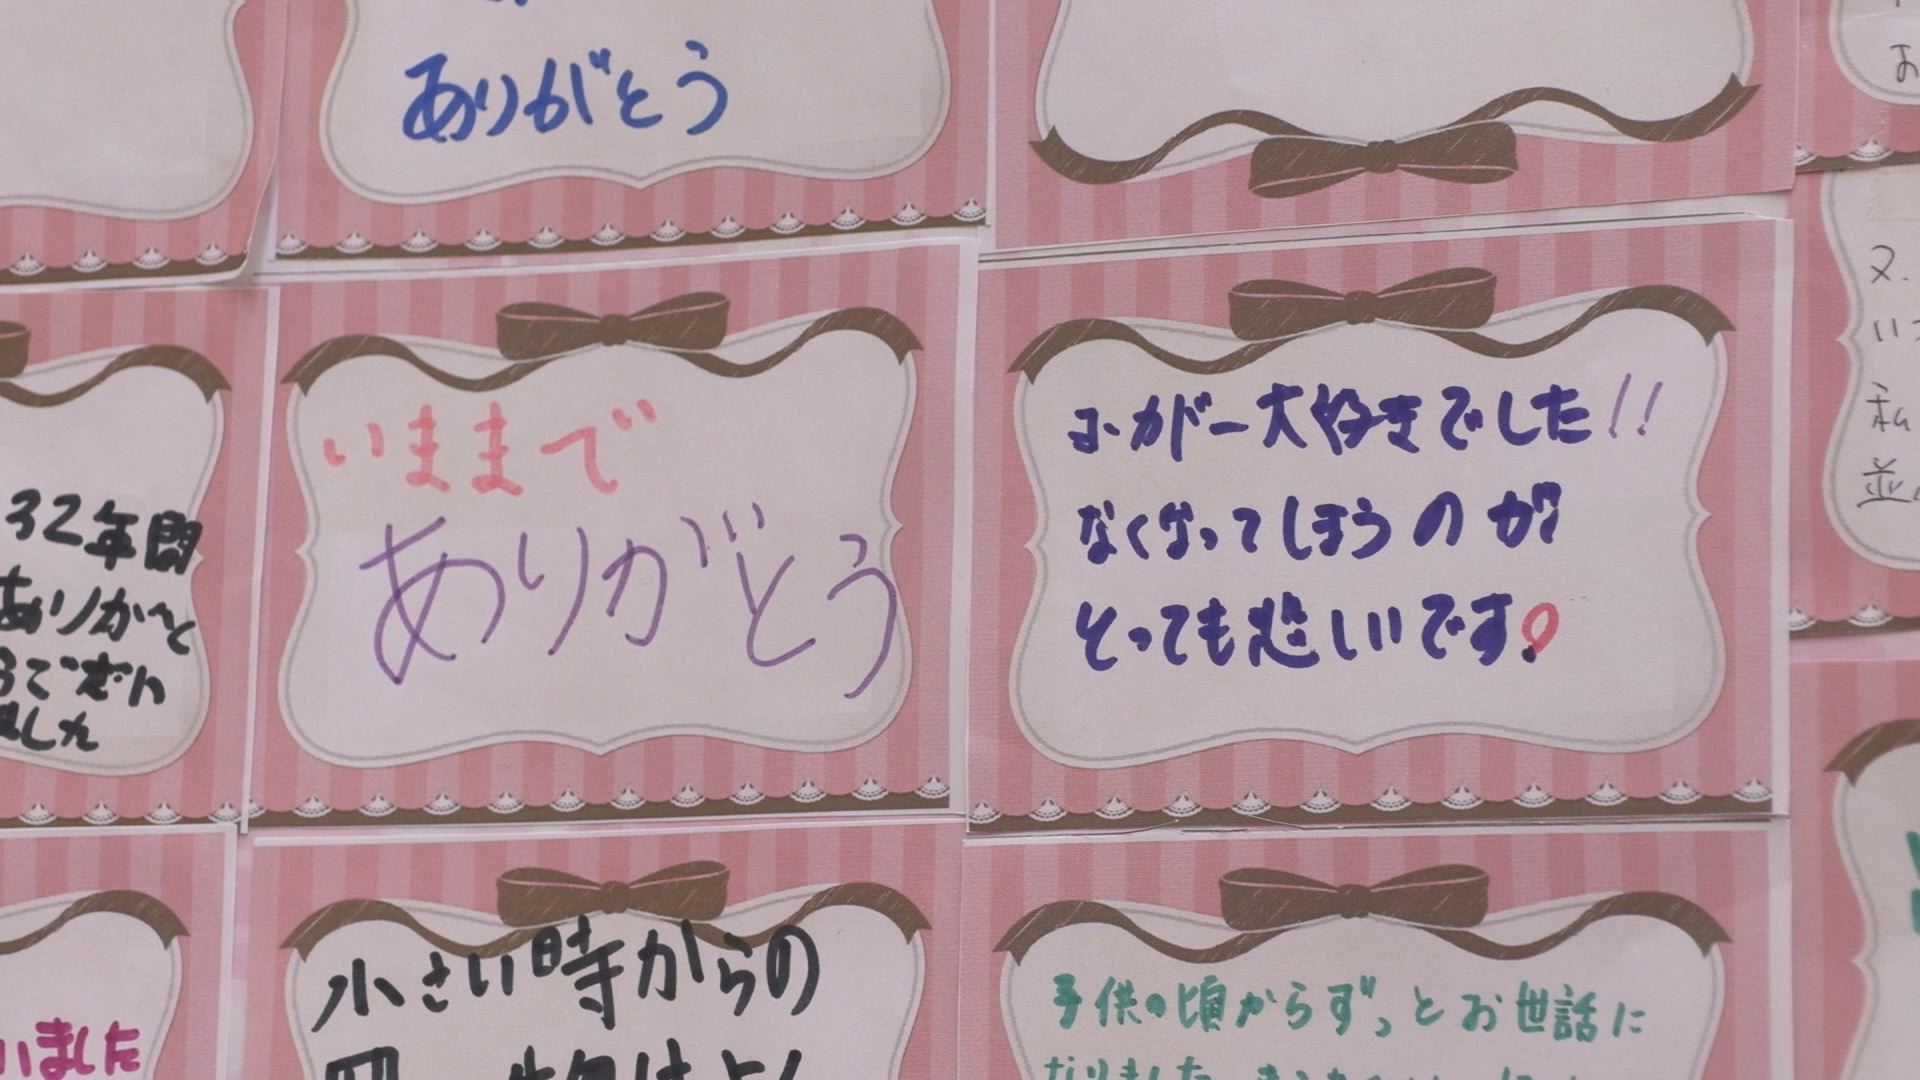 ありがとう
お
いままで
ありがとう
ヨーカドー大好きでした!!
なくなってしまうのが
とっても悲しいです!
又.
い
私
並
32年間
ありがと
うござい
ました
小さい時からの
子供の頃からずっとお世話に
なりました
いました